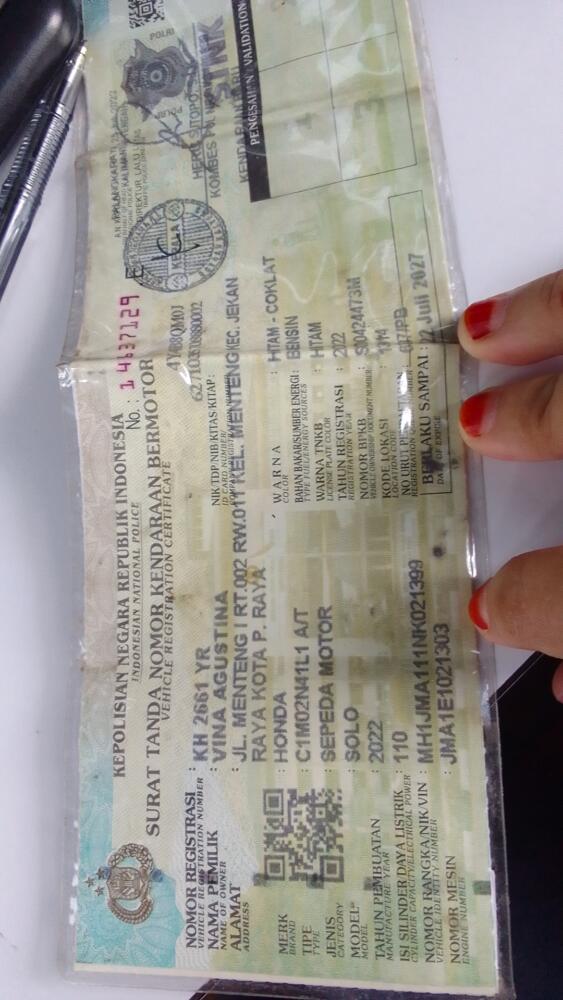 KEPOLISIAN NEGARA REPUBLIK INDONESIA
INDONESIAN NATIONAL POLICE
SURAT TANDA NOMOR KENDARAAN BERMOTOR
VEHICLE REGISTRATION CERTIFICATE
No. : 1 4637129 E
NOMOR REGISTRASI : KH 2661 YR
VEHICLE REGISTRATION NUMBER
NAMA PEMILIK : VINA AGUSTINA
NAME OF OWNER
NIK/TDP/NIB/KITAS/KITAP :
ID CARD NUMBER
ALAMAT : JL. MENTENG I RT.002 RW.011 KEL. MENTENG KEC. JEKAN
ADDRESS
RAYA KOTA P. RAYA
MERK : HONDA
BRAND
TIPE : C1M02N41L1 A/T
TYPE
JENIS : SEPEDA MOTOR
CATEGORY
MODEL : SOLO
MODEL
TAHUN PEMBUATAN : 2022
MANUFACTURE YEAR
ISI SILINDER/DAYA LISTRIK : 110
CYLINDER CAPACITY/ELECTRICAL POWER
NOMOR RANGKA/NIK/VIN : MH1JMA111NK021399
VEHICLE IDENTITY NUMBER
NOMOR MESIN : JMA1E1021303
ENGINE NUMBER
WARNA : HTAM - COKLAT
COLOR
BAHAN BAKAR/SUMBER ENERGI : BENSIN
TYPE FUEL/ENERGY SOURCES
WARNA TNKB : HTAM
LICENSE PLATE COLOR
TAHUN REGISTRASI : 2022
REGISTRATION YEAR
NOMOR BPKB : S00424473M
VEHICLE OWNERSHIP DOCUMENT NUMBER
KODE LOKASI
LOCATION CODE
NO URUT
BERLAKU SAMPAI : Juli 2027
DATE OF EXPIRE
POLRI
STNK
KOMBES POL
KEPALA
PENGESAHAN - VALIDATION